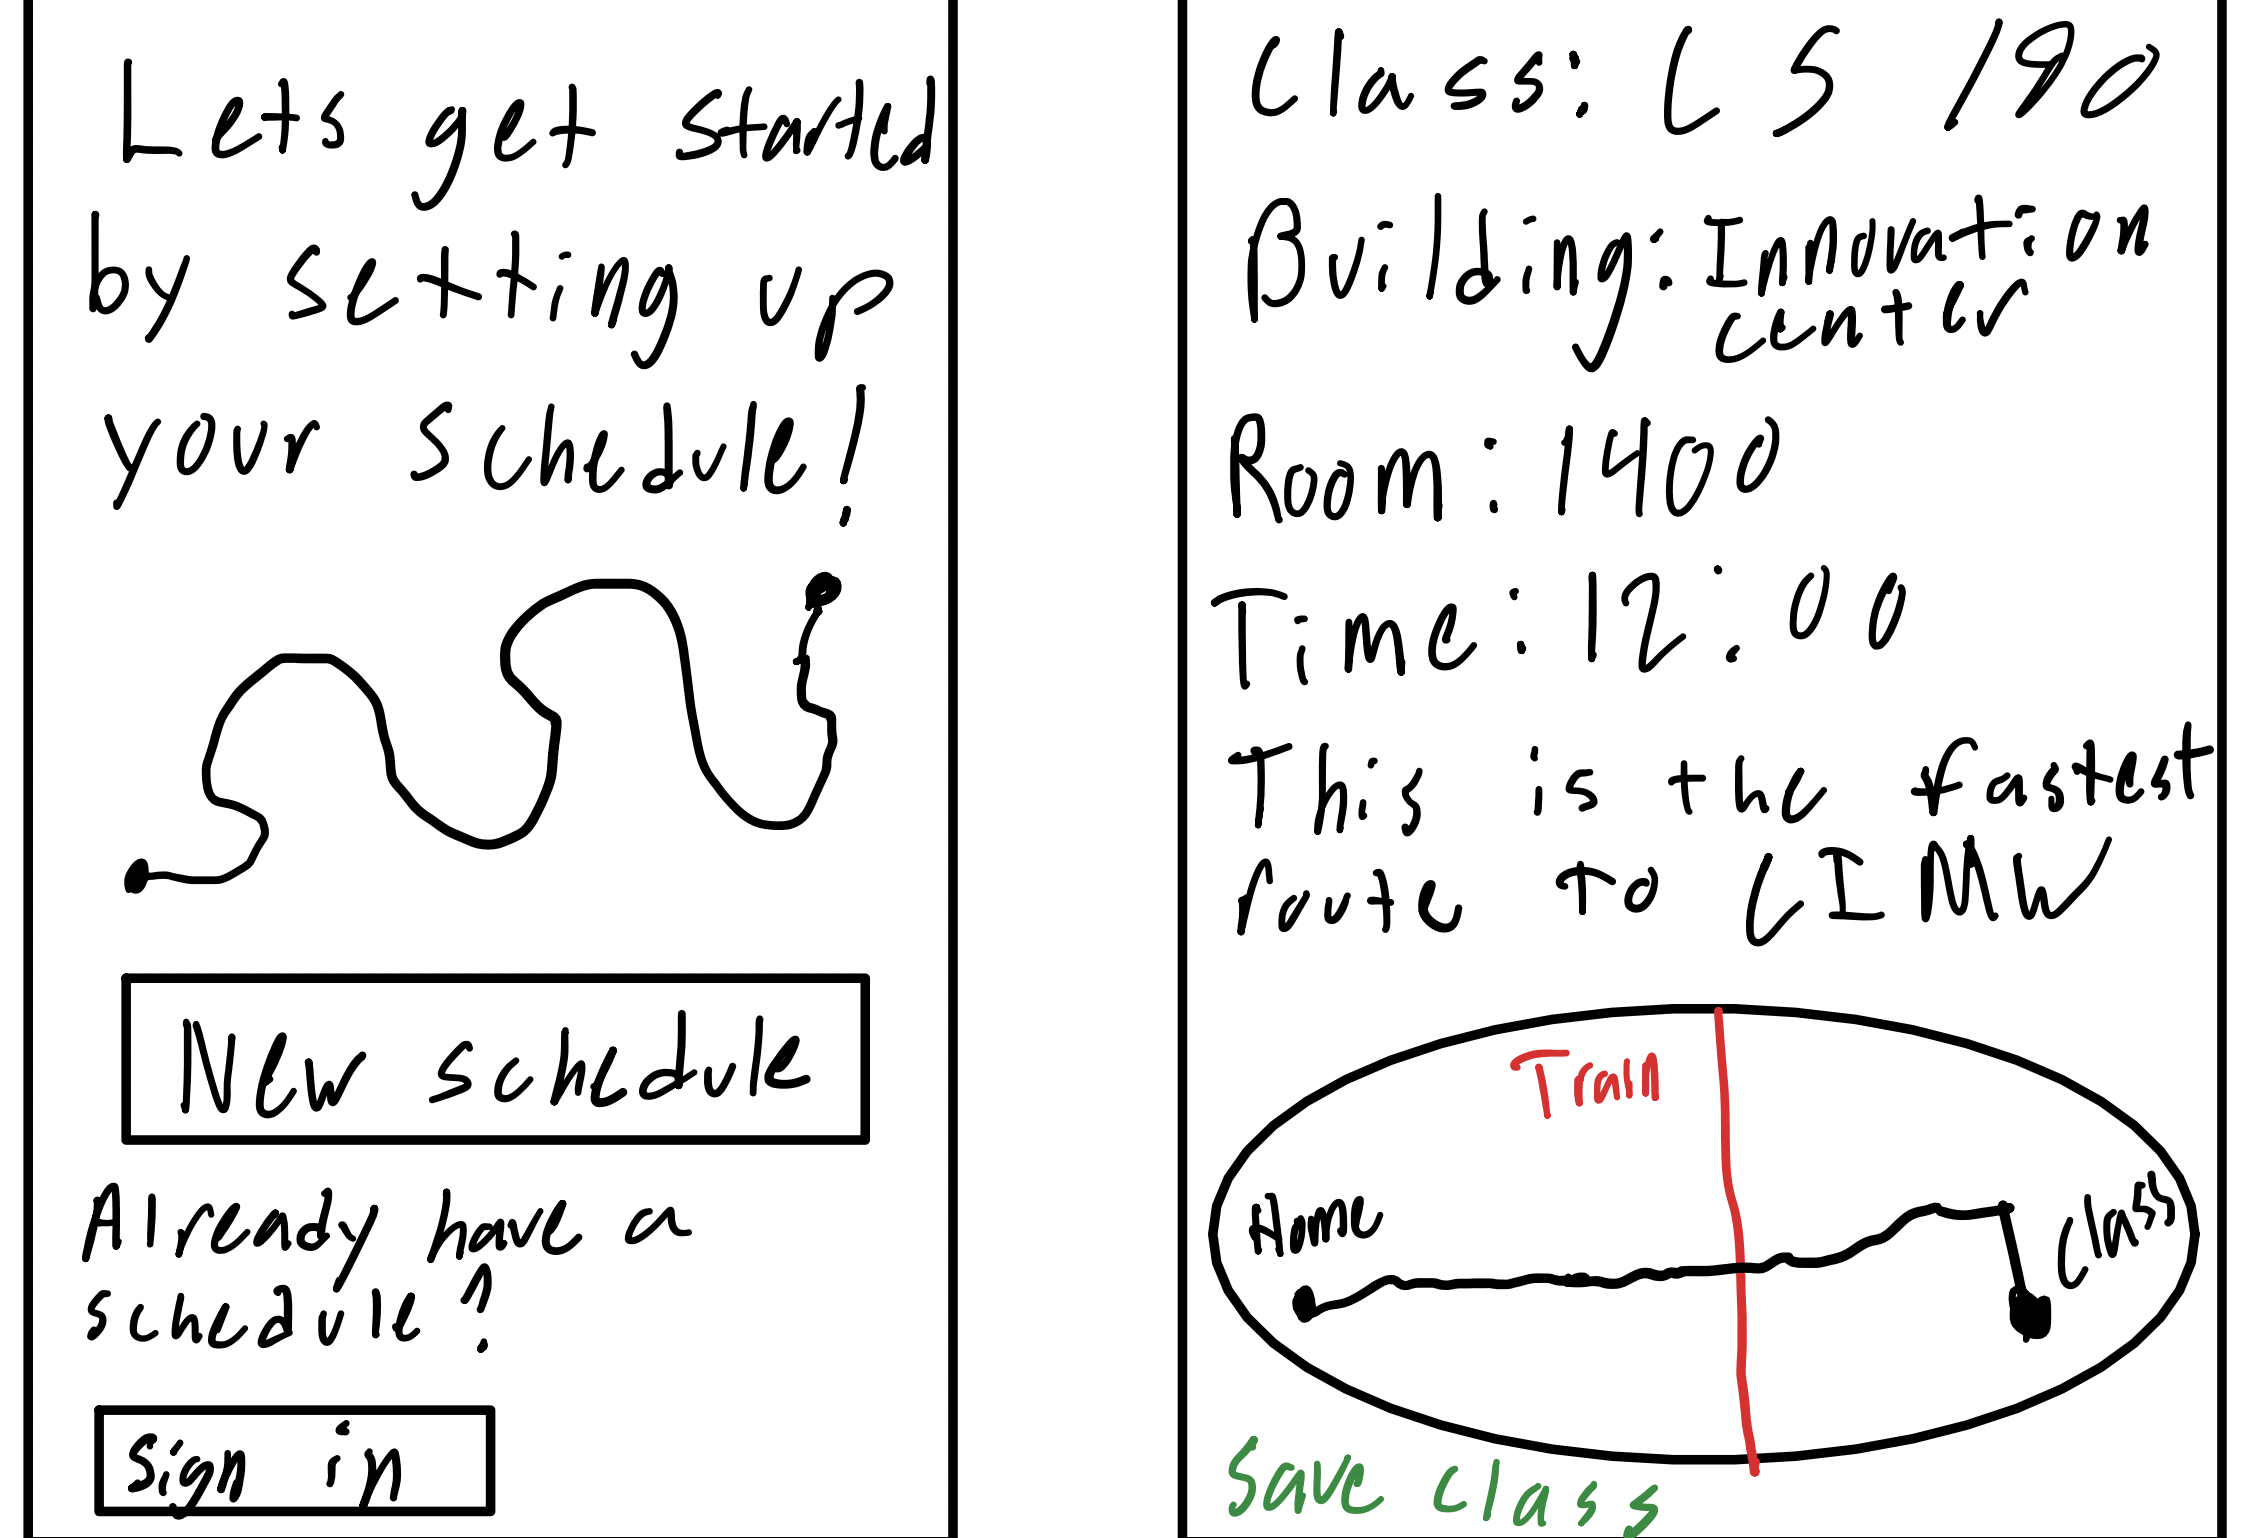 Lets get started
by setting up
your schedule!
New schedule
Already have a
schedule?
Sign in
Class: CS 190
Building: Innovation
center
Room: 1400
Time: 12:00
This is the fastest
route to CIMW
Train
Home
Class
Save class